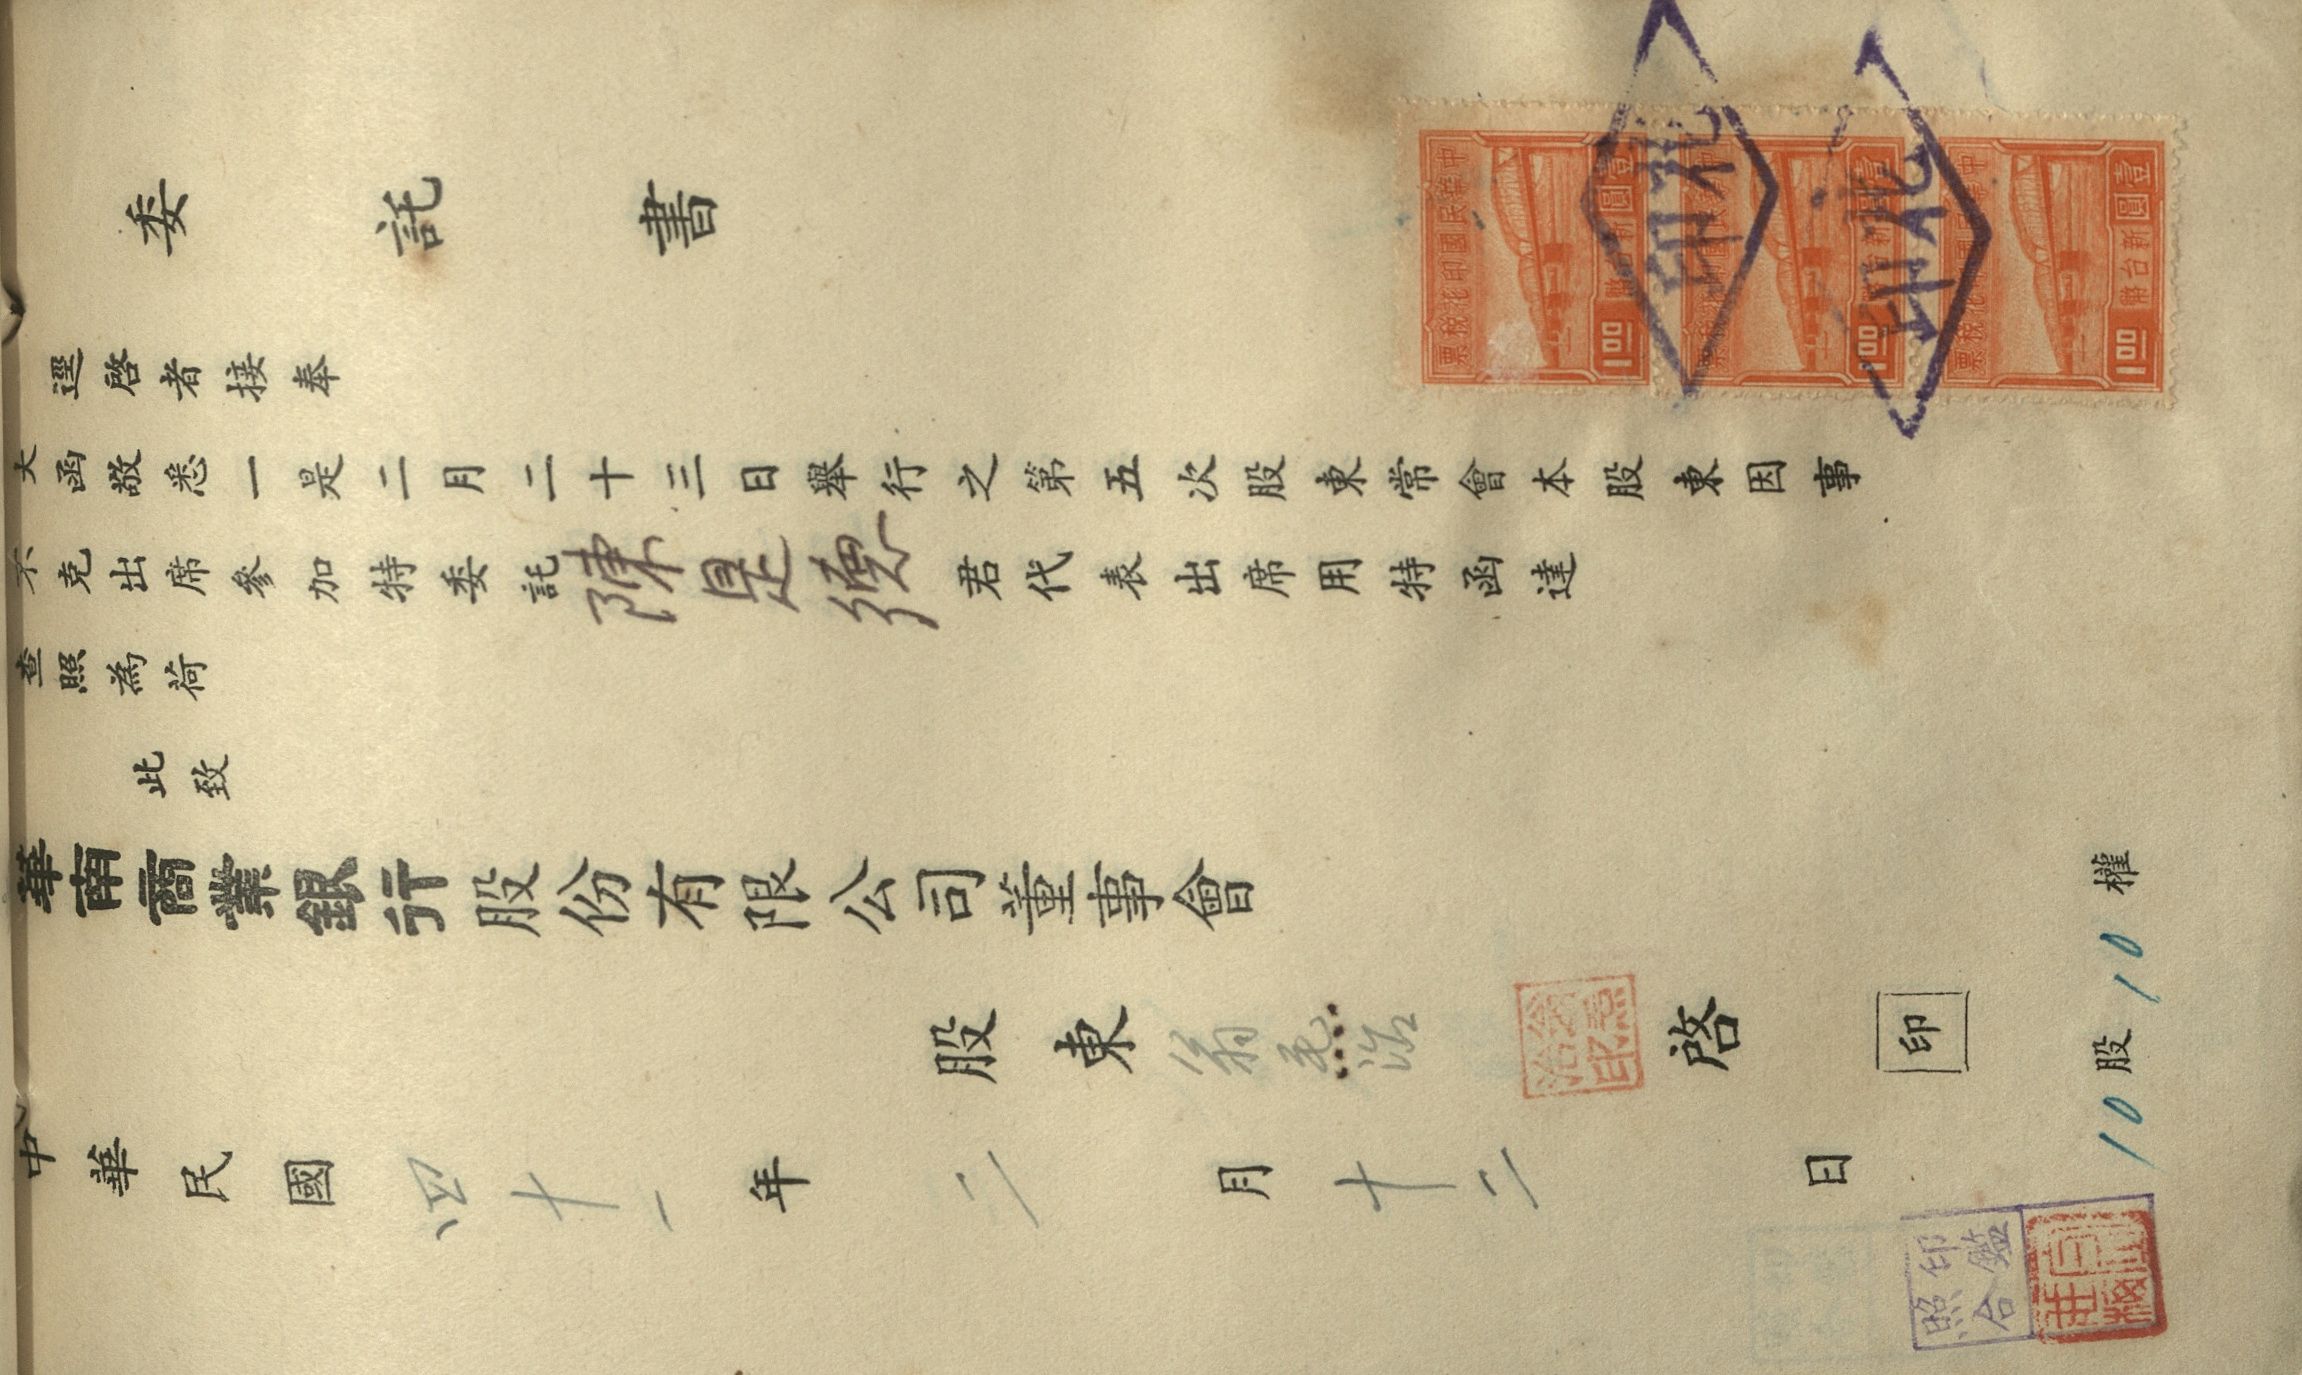 委託書
逕啓者接奉
大函敬悉一是二月二十三日舉行之第五次股東常會本股東因事
不克出席參加特委託陳是彌君代表出席用特函達
查照為荷
此致
華南商業銀行股份有限公司董事會
股東翁 治啓
印
中華民國四十一年二月十二日
10股10權
中華民國印花稅票
壹圓
新台幣
1.00
壹圓
1.00
壹圓
新台幣
1.00
印花
印花
印鑑
照合